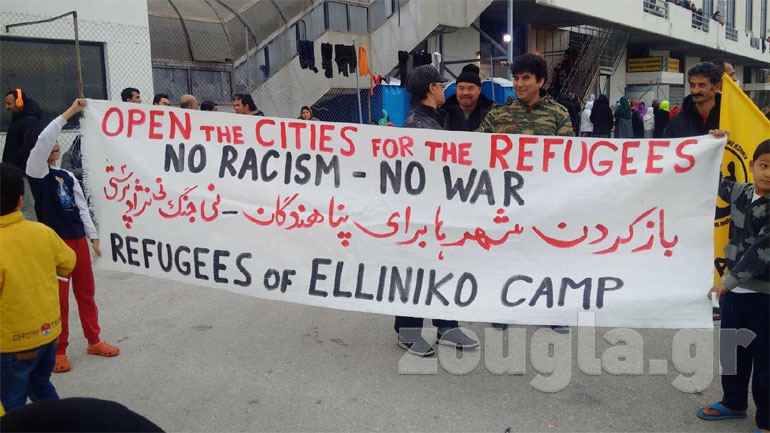 OPEN THE CITIES FOR THE REFUGEES
NO RACISM - NO WAR
باز کردن شهر ها برای پناهندگان - نی جنگ نی نژاد پرستی
REFUGEES OF ELLINIKO CAMP
zougla.gr